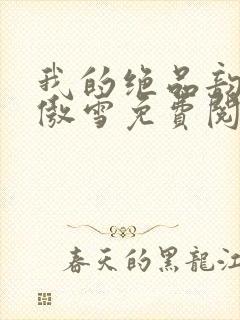 我的绝品
傲雪免費閱
春天的黑龍江